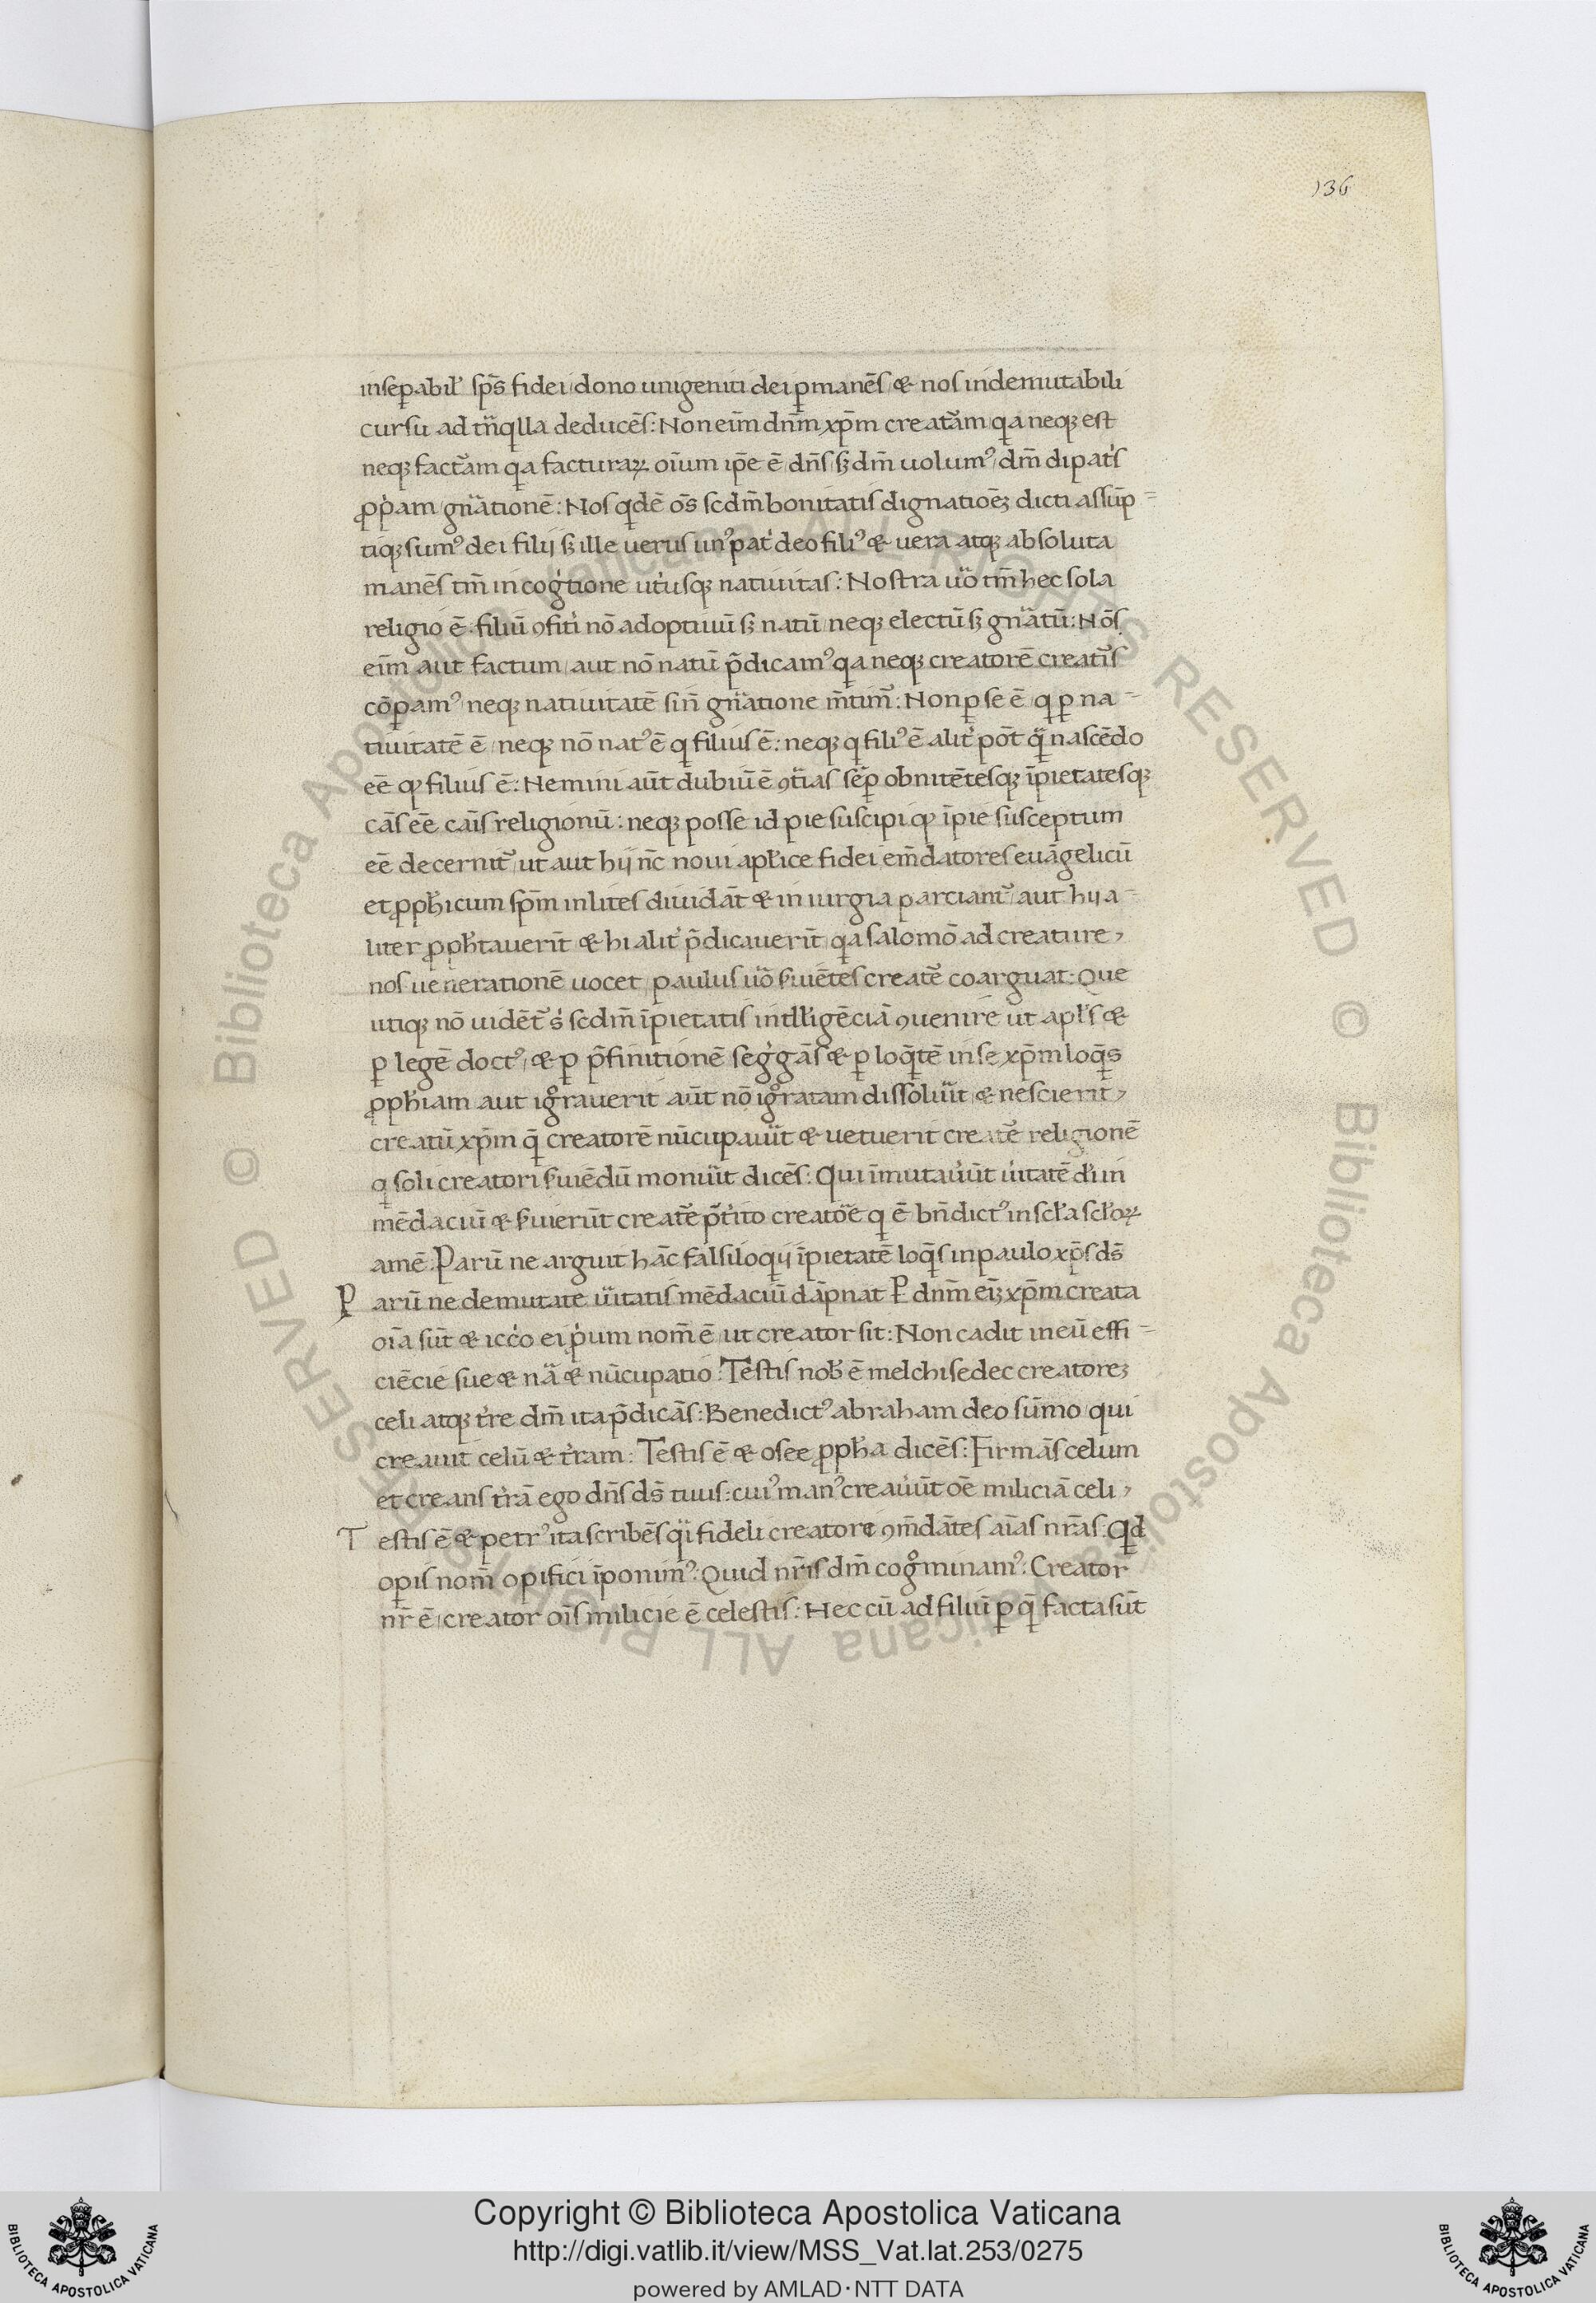 136
insep̱abil̕ sp̄s fidei dono unigeniti dei ꝑmanēs & nos indemutabili
cursu ad tñqlla deducēs: Non eīm dn̄m xp̄m creat᷑am qa neqȝ est
neqȝ fact᷑am qa facturaꝝ oīum ip̄e ē dn̄s sȝ dm̄ uolumꝰ dm̄ di pat͛s
ꝓpam gn̄ationē: Nos qdē os̄ scdm̄ bonitatis dignatiōeȝ dicti assūp=
tiqȝ sumꝰ dei filij sȝ ille uerus unꝰ pat͛ deo filiꝰ & uera atqȝ absoluta
manēs tm̄ in cog͛tione ut͛usqȝ natiuitas: Nostra uō tm̄ hec sola
religio ē filiū ꝯfit͛i nō adoptiuū sȝ natū neqȝ electū sȝ gn̄atū: Nōs
eīm aut factum aut nō natū p̄dicamꝰ qa neqȝ creatorē creat᷑is
cōꝑamꝰ neqȝ natiuitatē sin̄ gn̄atione m̄tim᷑: Non ꝑ se ē q ꝑ na=
tiuitatē ē neqȝ nō natꝰ ē q filius ē: neqȝ q filiꝰ ē alit͛ pōt q̄ nascēdo
eē qꝫ filius ē: Nemini aūt dubiū ē ꝯt̄ias sēꝑ obnitētesqȝ īpietatesqȝ
cās eē cāis religionū: neqȝ posse id pie suscipi qꝫ īpie susceptum
eē decernit᷑ ut aut hij nc̄ noui apl̕ice fidei em̄datores euāgelicū
et ꝓph̕icum sp̄m in lites diuidāt & in iurgia parciant᷑ aut hij a=
liter ꝓph̕tauerīt & hi alit͛ p̄dicauerīt qa salomō ad creature
nos uenerationē uocet paulus uō s̕uiētes creat᷑e coarguat: Que
utiqȝ nō uidēt᷑ s͛ scdm̄ īpietatis intll̕igēciā ꝯuenire ut apl̕s &
ꝑ legē doctꝰ & ꝑ p̄finitionē seg͛gās & ꝑ loq̄tē in se xp̄m loq̄s
ꝓph̕iam aut igͦrauerit aūt nō igͦratam dissolūit & nescierit
creatū xp̄m q̄ creatorē nūcupauit & uetuerit creat᷑e religionē
q soli creatori s̕uiēdū monūit dicēs: Qui īmutau͛ūt u͛itatē di̕ in
mēdaciū & s̕uierūt creat᷑e pt͛ito creatoē q ē bn̄dictꝰ in scl̕a scl̕oꝝ
amē. Parū ne arguit hāc falsiloqij īpietatē loq̄s in paulo xp̄s ds̄
Parū ne demutate u͛itatis mēdaciū dāpnat P dn̄m eīȝ xp̄m creata
oīa sūt & icc͛o ei p͛um nom̄ ē ut creator sit: Non cadit in eū effi=
ciēcie sue & nā & nūcupatio: Testis nob̕ ē melchisedec creatoreȝ
celi atqȝ t͛re dm̄ ita p̄dicās: Benedictꝰ abraham deo sūmo qui
creauit celū & t͛ram: Testis ē & osee ꝓph̕a dicēs: Firmās celum
et creans t͛rā ego dn̄s ds̄ tuus: cuiꝰ manꝰ creau͛ūt oē miliciā celi
Testis ē & petrꝰ ita scribēs q̄i fideli creatore ꝯm̄dātes aīas nr̄as: Qd
opis nom̄ opifici īponimꝰ: Quid nr̄is dm̄ cogͦminamꝰ: Creator
nr̄ ē creator oīs milicie ē celestis: Hec cū ad filiū ꝑ q̄ facta sūt
© Biblioteca Apostolica Vaticana ALL RIGHTS RESERVED
Copyright © Biblioteca Apostolica Vaticana
http://digi.vatlib.it/view/MSS_Vat.lat.253/0275
powered by AMLAD·NTT DATA
BIBLIOTECA APOSTOLICA VATICANA
BIBLIOTECA APOSTOLICA VATICANA